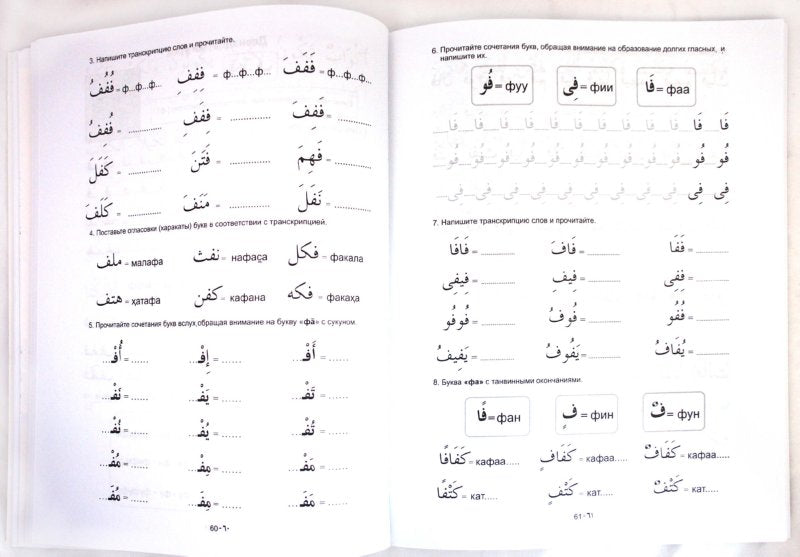 3. Напишите транскрипцию слов и прочитайте.
فُفُفُ = ф...ф...ф... فِفِفِ = ф...ф...ф... فَفَفَ = ф...ф...ф...
فُفِفُ = ............ فَفِفَ = ............ فَفِفَ = ............
كَفَلَ = ............ فَتَنَ = ............ فَهِمَ = ............
كَلَفَ = ............ مَنَفَ = ............ نَفَلَ = ............
4. Поставьте огласовки (харакаты) букв в соответствии с транскрипцией.
ملف = малафа نفث = нафас̱а فكل = факала
هتف = ҳатафа كفن = кафана فكه = факаҳа
5. Прочитайте сочетания букв вслух, обращая внимание на букву «фа» с сукуном.
أُفْ = ...... إِفْ = ...... أَفْ = ......
نَفْـ = ...... يَفْـ = ...... تَفْـ = ......
نُفْـ = ...... يُفْـ = ...... تُفْـ = ......
60-٦٠
6. Прочитайте сочетания букв, обращая внимание на образование долгих гласных, и
напишите их.
فُو = фуу فِي = фии فَا = фаа
فَا فَا فَا فَا فَا فَا فَا فَا فَا فَا فَا
فُو فُو فُو فُو فُو فُو فُو فُو فُو فُو فُو
فِي فِي فِي فِي فِي فِي فِي فِي فِي فِي
7. Напишите транскрипцию слов и прочитайте.
فَافَا = ............ فَافَ = ............ فَفَا = ............
فِيفِي = ............ فِيفِ = ............ فِفِي = ............
فُوفُو = ............ فُوفُ = ............ فُفُو = ............
يَفِيفُ = ............ يَفُوفُ = ............ يُفَافُ = ............
8. Буква «фа» с танвинными окончаниями.
فًا = фан فٍ = фин فٌ = фун
كَفَافًا = кафаа..... كَفَافٍ = кафаа..... كَفَافٌ = кафаа.....
كَتْفًا = кат..... كَتْفٍ = кат..... كَتْفٌ = кат.....
61-٦١